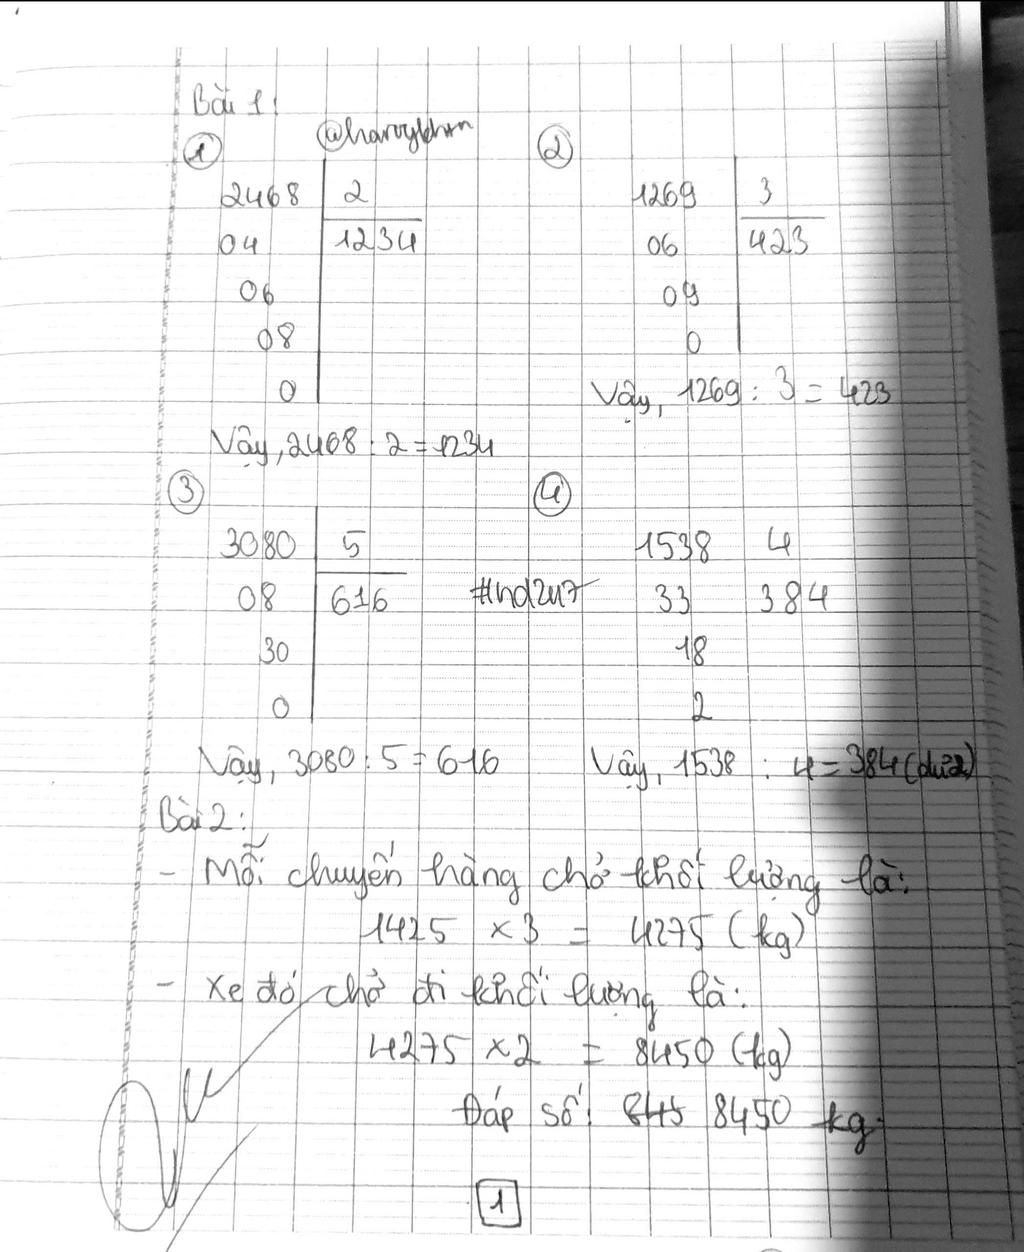 Bài 1:
@haroykhm
① ②
2468 2
04 1234
06
08
0
Vậy, 2468 : 2 = 1234
1269 3
06 423
09
0
Vậy, 1269 : 3 = 423
③ ④
3080 5
08 616
30
0
Vậy, 3080 : 5 = 616
#hd2u7
1538 4
33 384
18
2
Vậy, 1538 : 4 = 384 (dư 2)
Bài 2:
- Mỗi chuyến hàng chở khối lượng là:
1425 x 3 = 4275 (kg)
- Xe đó chở đi khối lượng là:
4275 x 2 = 8450 (kg)
Đáp số: 8450 kg.
1